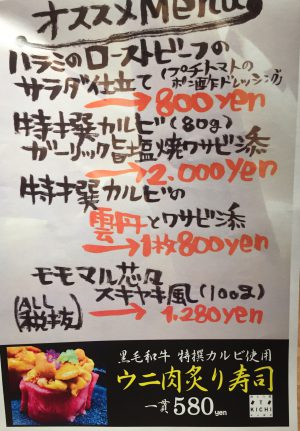 オススメMenu
ハラミのローストビーフの
サラダ仕立て(プチトマトの
ポン酢ドレッシング)
→800yen
特撰カルビ(80g)
ガーリック旨塩焼ワサビ添
→2.000yen
特撰カルビの
雲丹とワサビ添
→1枚800yen
モモマル芯
スキヤキ風(100g)
→1.280yen
(ALL
税抜)
黒毛和牛 特撰カルビ使用
ウニ肉炙り寿司
一貫 580yen
KICHI